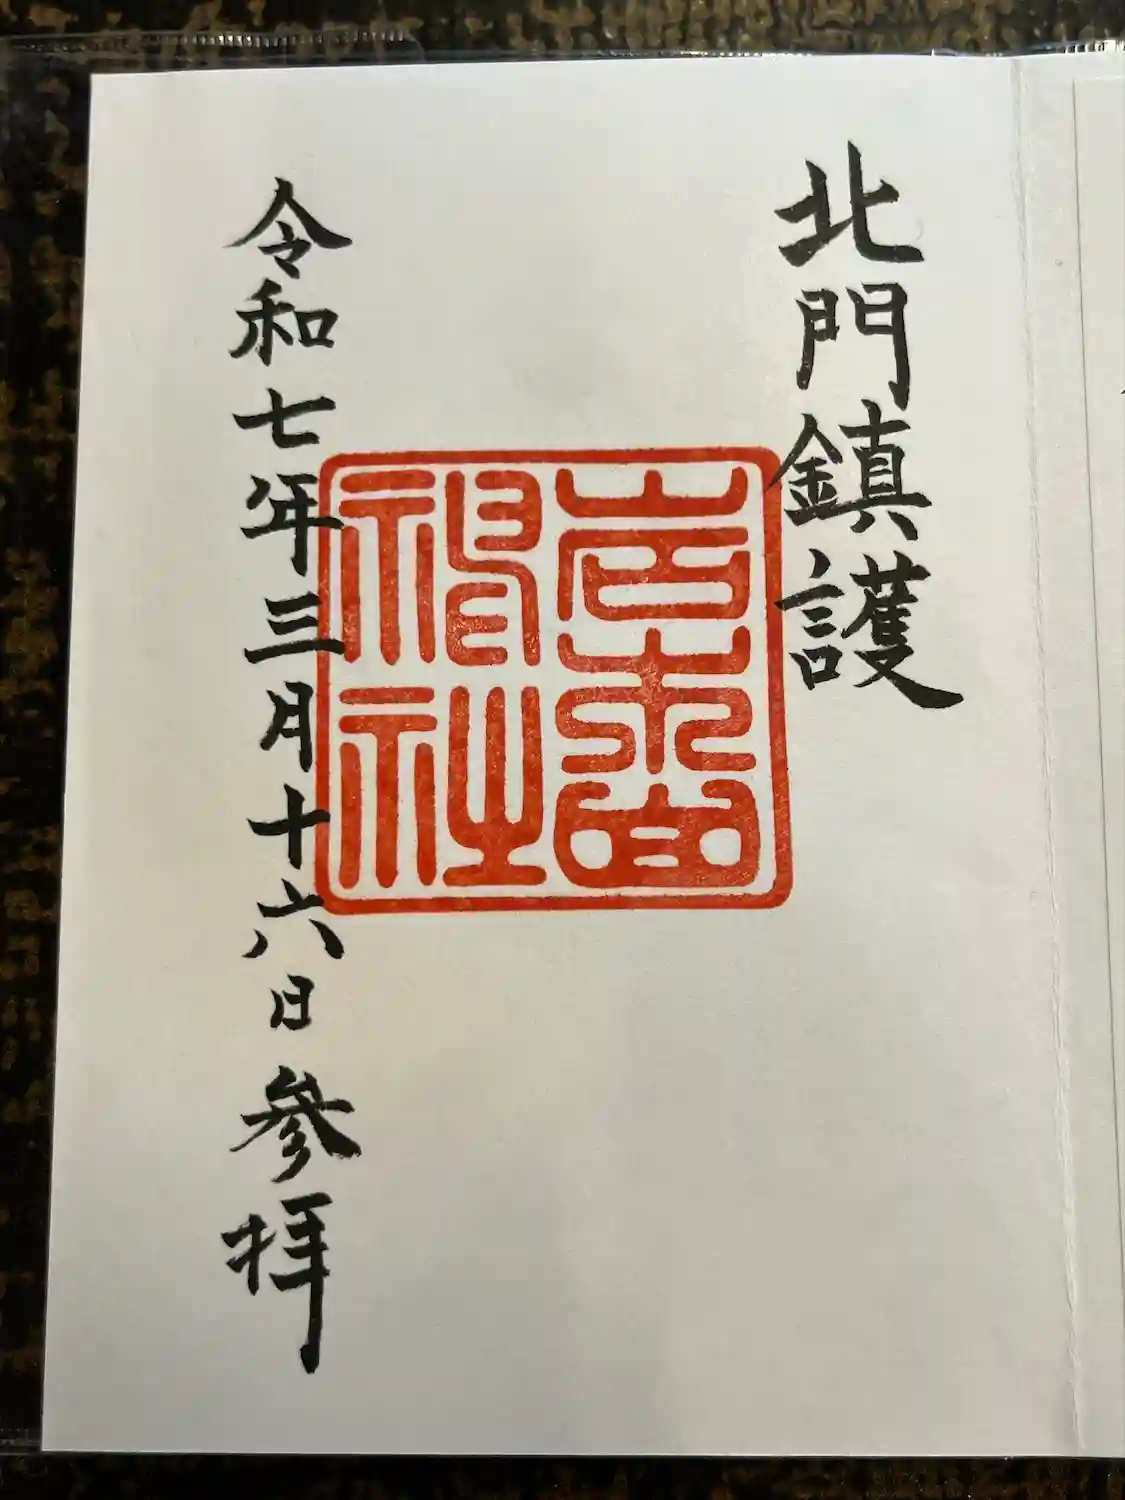 北門鎮護
岩木山
神社
令和七年三月十六日参拝